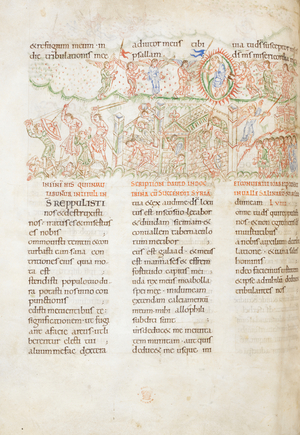 et refugium meum · in
die tribulationis mee
adiutor meus tibi
psallam
quia ds susceptor
ds ms misericordia
IN FINE HIS QUI INMU
TABUNTUR IN TITULI IN
DS REPPULISTI
nos et destruxisti
nos iratus es et misertus
es nobis
Commovisti terram et con
turbasti eam sana con
tritiones eius quia mo
ta est
Ostendisti populo tuo du
ra potasti nos vino con
punctionis
Dedisti metuentibus te
significationem ut fugi
ant a facie arcus ut li
berentur electi tui
Salvum me fac dextera
SCRIPTIONE DAVID IN DOC
TRINA CU SUCCENDIT SYRIA
tua & exaudi me ds locu
tus est in sco suo laetabor
et dividam sicimam et
convallem tabernaculo
rum metibor
Meus est galaad et meus
est manasses et effrem
fortitudo capitis mei
Iuda rex meus moab olla
spei mee · in idumeam
extendam calciamentu
meum mihi allophili
subditi sunt
Quis deducet me in civita
tem munitam aut quis
deducet me usque in
idumeam
Nonne tu ds qui reppulisti
nos et non egredieris ds in
virtutibus nostris
Da nobis auxilium de tribu
latione et vana salus
hominis
In deo faciemus virtutem et
ipse ad nihilum deducet
tribulantes nos